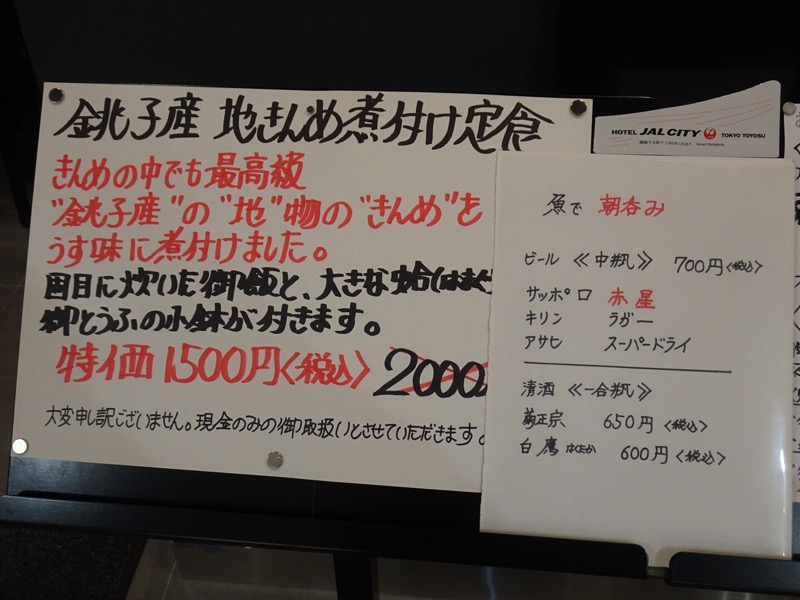 銚子産 地きんめ煮付け定食
きんめの中でも最高級
"銚子産"の"地"物の"きんめ"を
うす味に煮付けました。
固目に炊いた御飯と、大きな蛤(はまぐ
御とうふの小鉢が付きます。
特価1,500円〈税込〉 2000
大変申し訳ございません。現金のみの御取扱いとさせていただきます。
HOTEL JAL CITY TOKYO TOYOSU
魚で 朝呑み
ビール 《中瓶》 700円〈税込〉
サッポロ 赤星
キリン ラガー
アサヒ スーパードライ
清酒 《一合瓶》
菊正宗 650円〈税込〉
白鷹 はくたか 600円〈税込〉